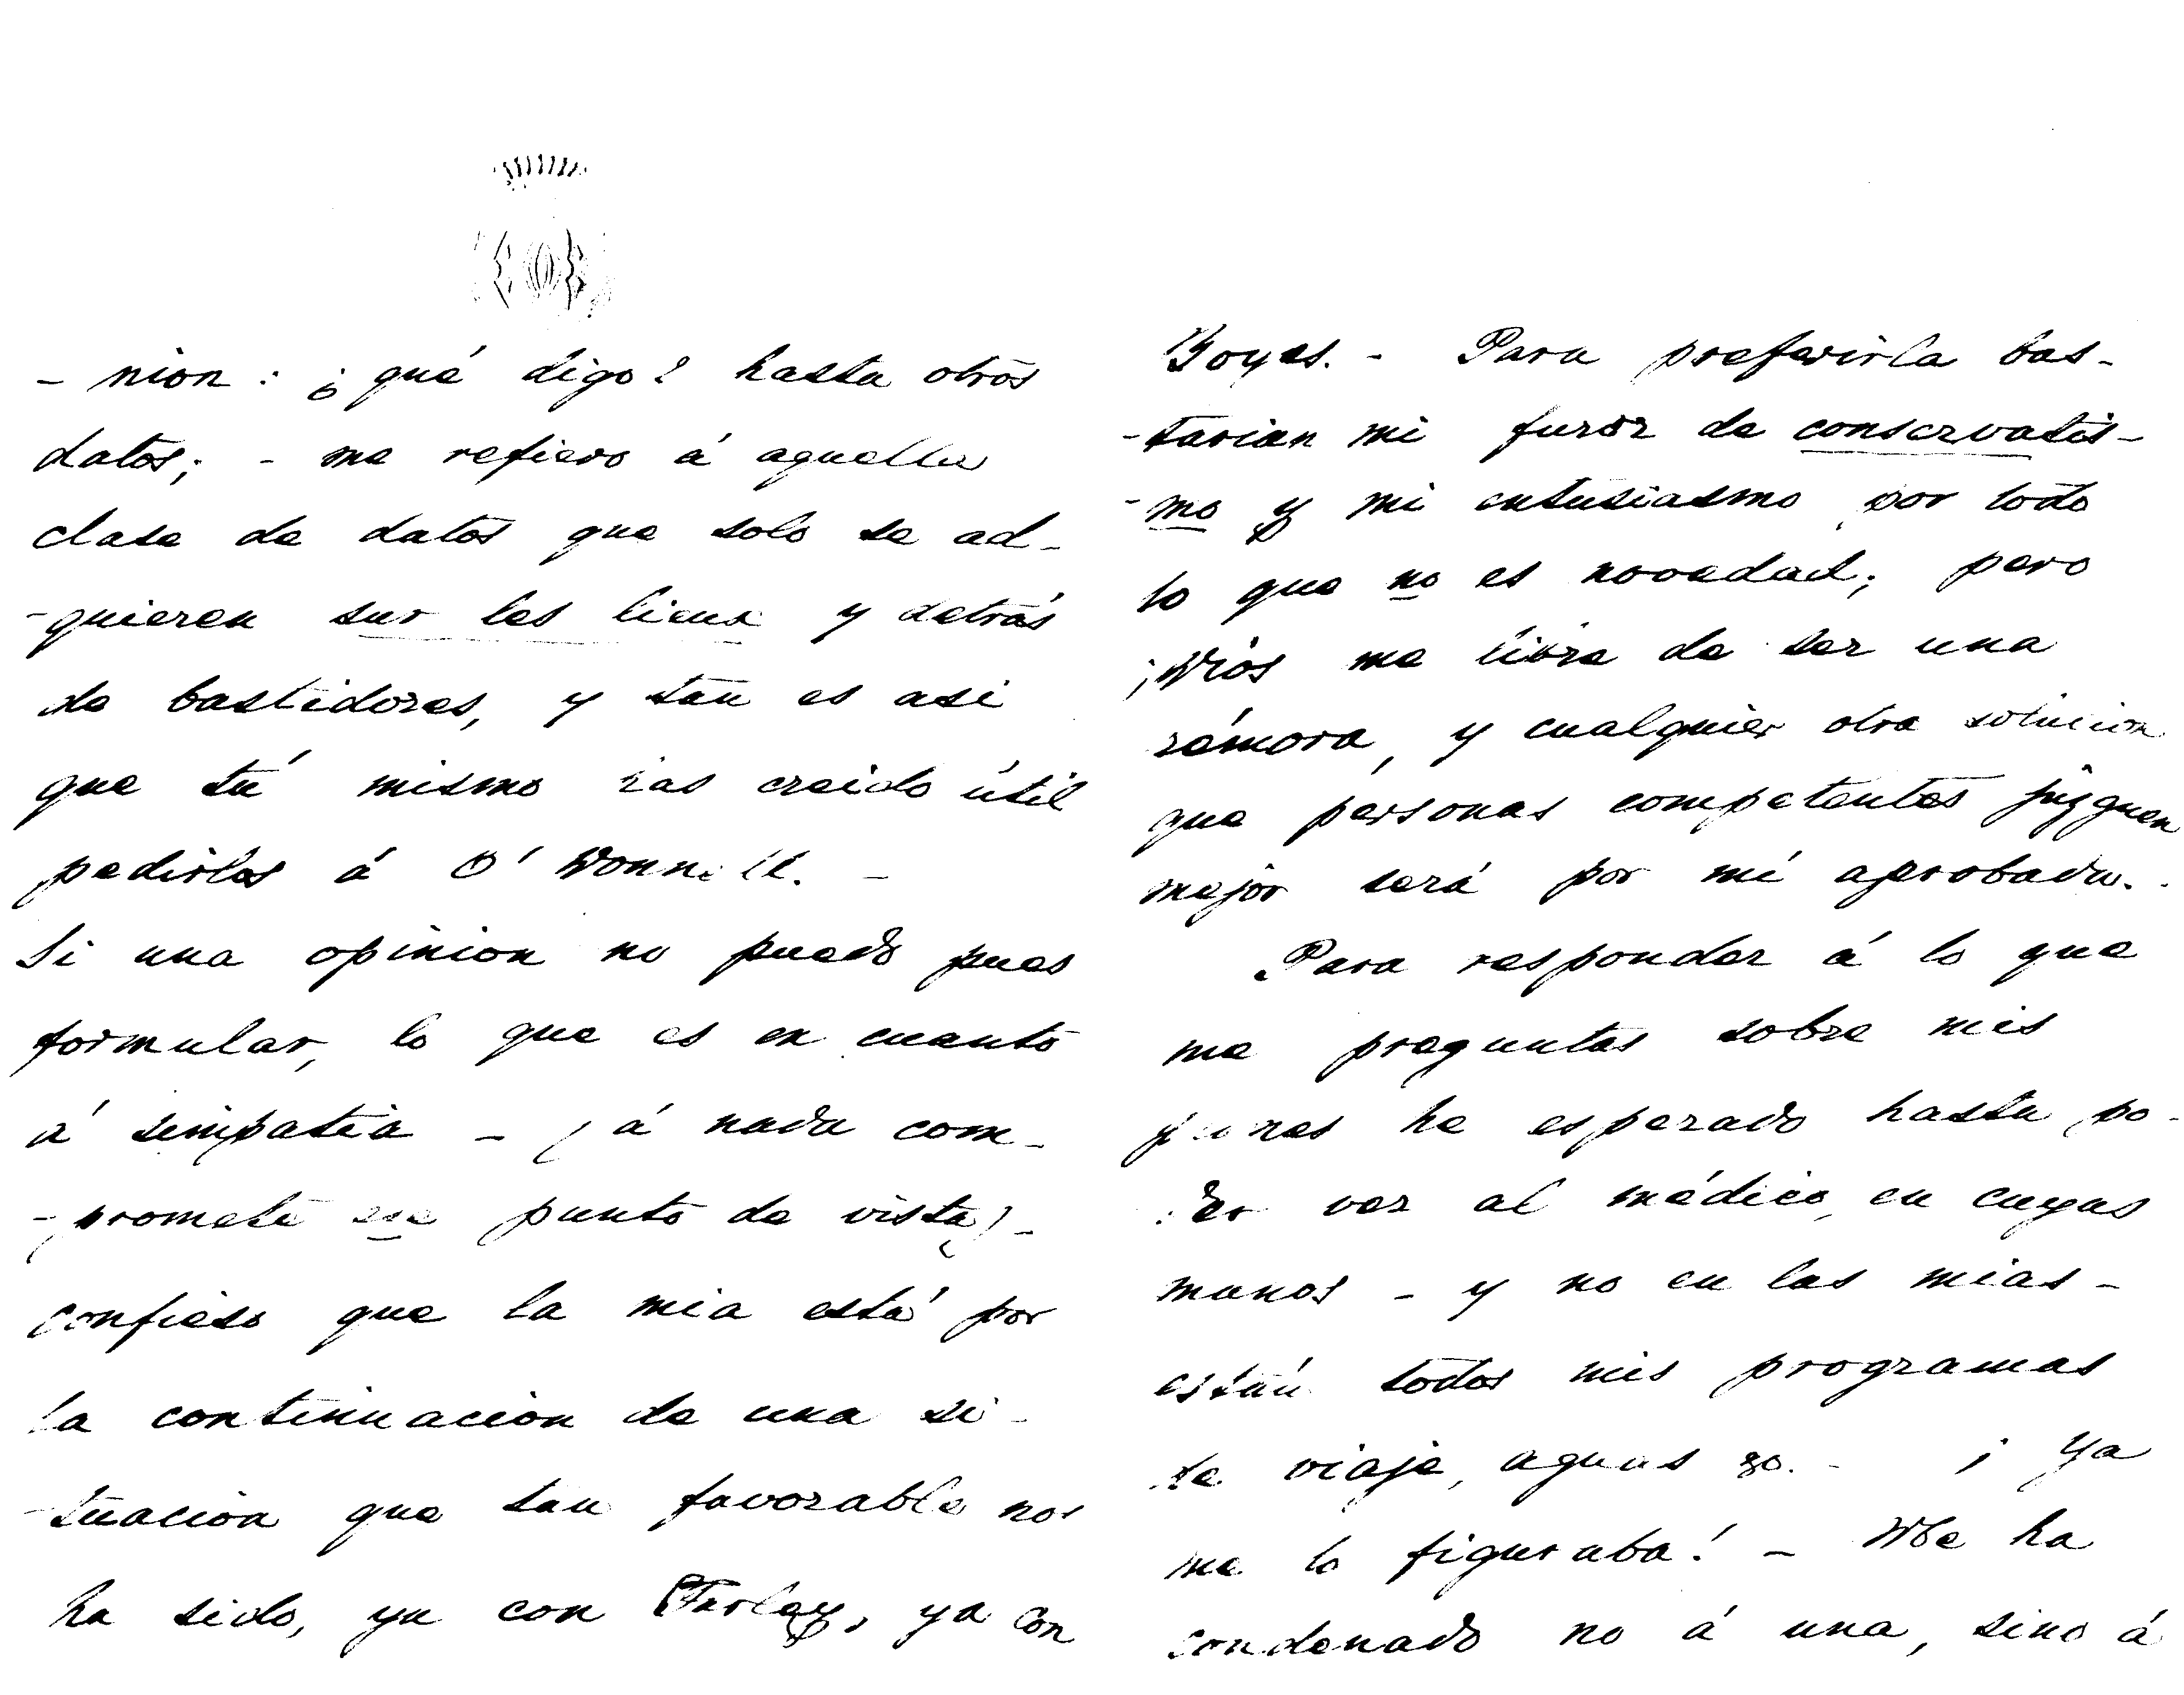 - nion: ¿qué digo? hasta otros
datos; - me refiero á aquella
clase de datos que solo se ad-
-quieren sur les lieux y detrás
de bastidores, y tan es asi
que tú mismo has creido útil
pedirlos á O'Donnell. -
Si una opinion no puedo pues
formular, lo que es en cuanto
á simpatía - (á nada com-
-promete ese punto de vista) -
confieso que la mia está por
la continuacion de una si-
-tuacion que tan favorable nos
ha sido, ya con Turlay, ya con
Goyes. - Para preferirla bas-
-tarian mi furor de conservatis-
-mo y mi entusiasmo por todo
lo que no es novedad; pero
¡Dios me libre de ser una
rémora, y cualquier otra solucion
que personas competentes juzguen
mejor será por mí aprobada.
Para responder á lo que
me preguntas sobre mis
planes he esperado hasta po-
der ver al médico, en cuyas
manos - y no en las mias -
están todos mis programas
de viaje, aguas &a. - ¡Ya
me lo figuraba! - Me ha
condenado no á una, sino á